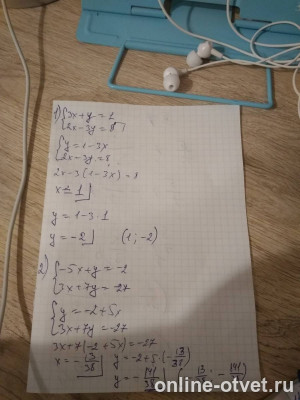 1) {3x+y=1
2x-3y=8
{y=1-3x
2x-3y=8
2x-3(1-3x)=8
x=1
y=1-3·1
y=-2 (1;-2)
2) {-5x+y=-2
3x+7y=-27
{y=-2+5x
3x+7y=-27
3x+7(-2+5x)=-27
x=-13/38 y=-2+5·(-13/38)
y=-141/38
online-otvet.ru